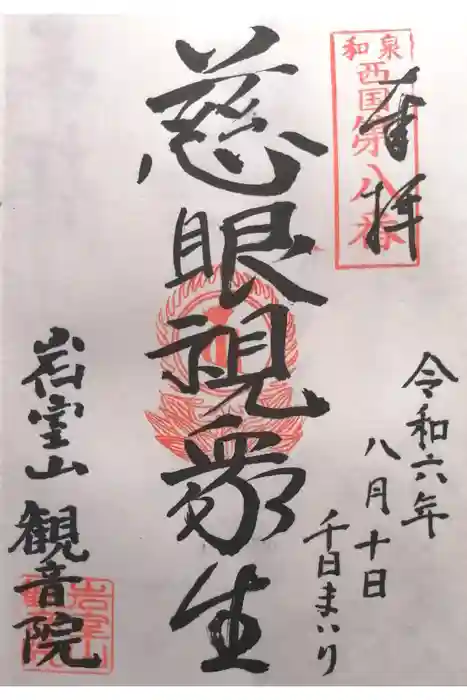 奉拝
和泉
西国第八番
令和六年
八月十日
千日まいり
慈眼視衆生
岩室山 観音院